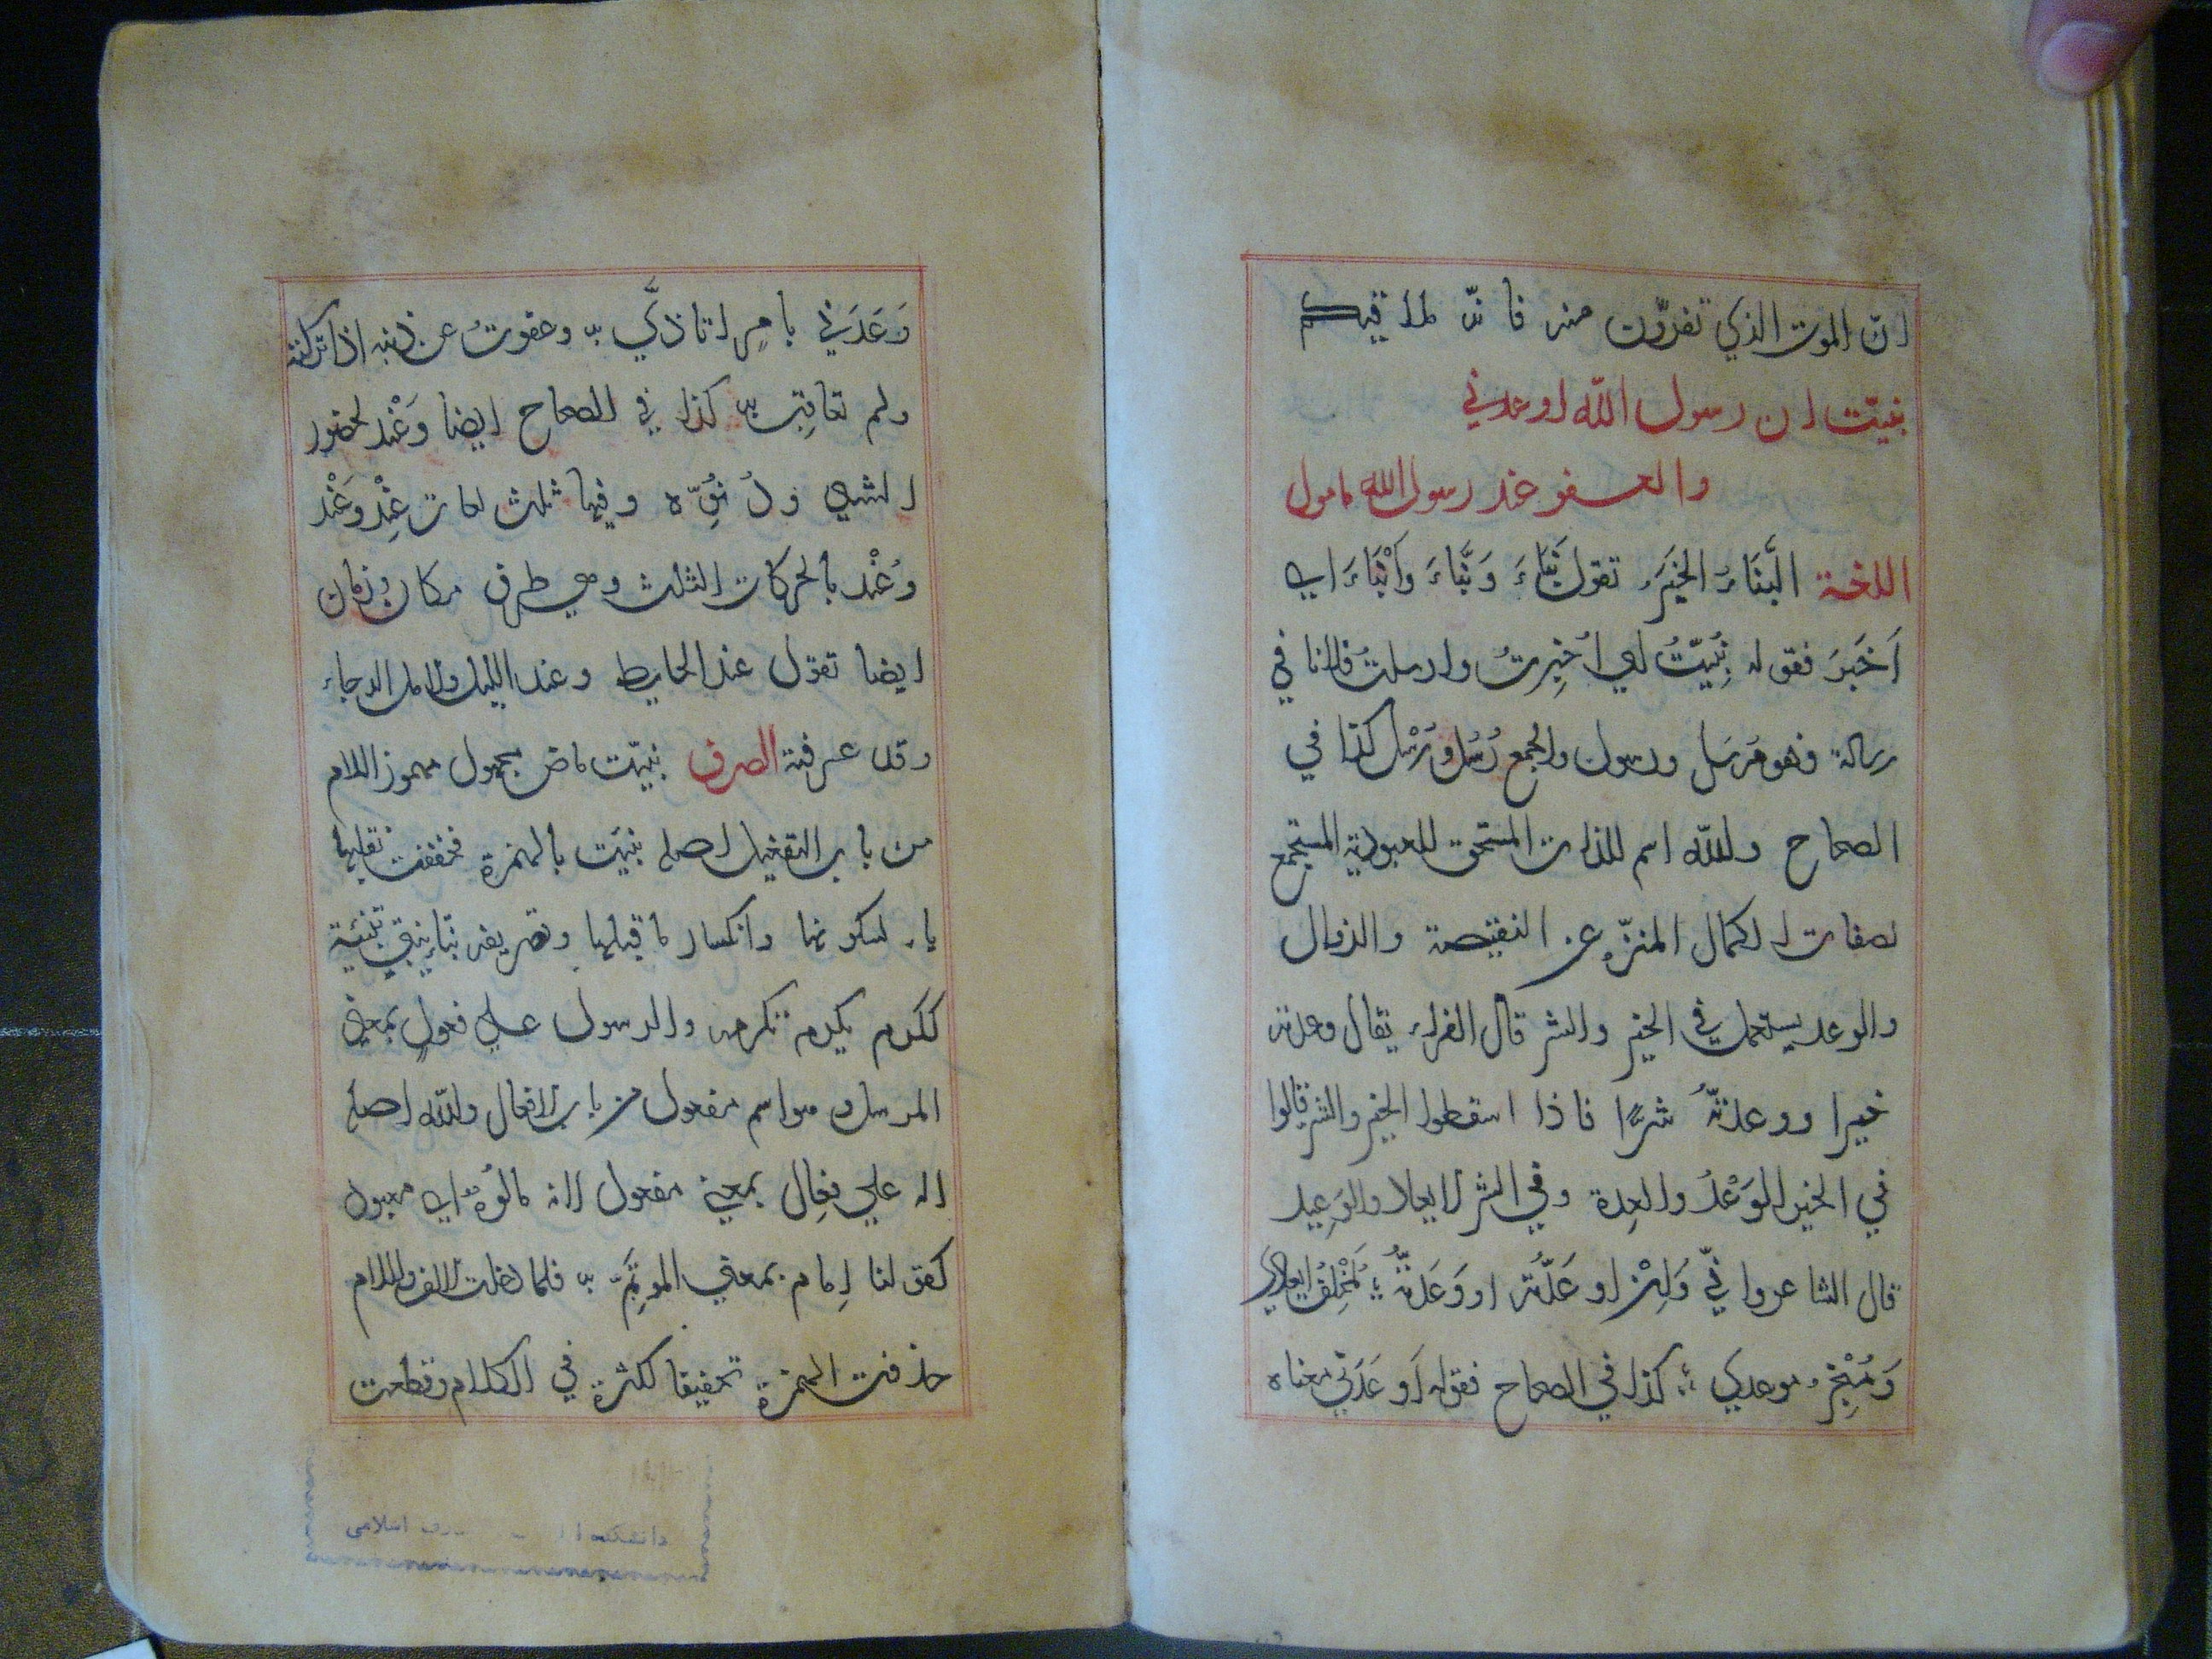 ان الموت الذي تفرّون منه فانّه ملاقيكم
نبيّت ان رسول اللّه اوعدني
والعفو عند رسول الله مامول
اللغة النَّبَاءُ الخَبَرُ تقول نَبَاءَ وَنَبَّاءَ وَاَنْبَاءَ اي
اَخبَرَ فقوله نُبِّيتُ اي اُخبِرتُ وارسلتُ فلانا في
رسالة فهو مُرسَل ورسول والجمع رُسُل ورُسْل كذا في
الصحاح واللّه اسم للذات المستحق للعبودية المستجمع
لصفات الكمال المنزّه عن النقيصة والزوال
والوعد يستعمل في الخير والشر قال الفراء يقال وعدته
خيرا ووعدتهُ شرًّا فاذا اسقطوا الخير والشر قالوا
في الخير الوَعْدُ والعِدة وفي الشر الايعاد والوَعِيد
قال الشاعر وانّي وَاِنْ اوعَدتُه او وَعَدتُهُ لَمُخْلِفُ ايعادي
وَمُنْجِزُ موعدي كذا في الصحاح فقوله اَوعَدَني معناه
وَعَدَني بامرٍ اتاذّي به وعفوتُ عن ذنبه اذا تركته
ولم تعاقِبه كذا في الصحاح ايضا وَعَنْد لحضور
الشيي ودُنُوِّه وفيها ثلث لغات عِنْد وعَنْد
وعُنْد بالحركات الثلث وهي ظرف مكان وزمان
ايضا تقول عند الحايط وعند الليل والامل الرجاء
وقد عرفته الصرف نبيّت ماض مجهول مهموز اللام
من باب التفعيل اصله نبيّت بالهمزة فخففت بقلبها
ياء لسكونها وانكسار ما قبلها وتصريفه نبّا ينبّي تنبئة
ككرم يكرم تكرمه والرسول علي فعول بمعني
المرسل وهو اسم مفعول من باب الافعال واللّه اصله
اله علي فِعال بمعني مفعول لانه مالُوهٌ اي معبود
كقولنا اِمام بمعني الموتَمِّ به فلما دخلت الالف واللام
حذفت الهمزة تخفيفا لكثرة في الكلام وقطعت
اسلامى